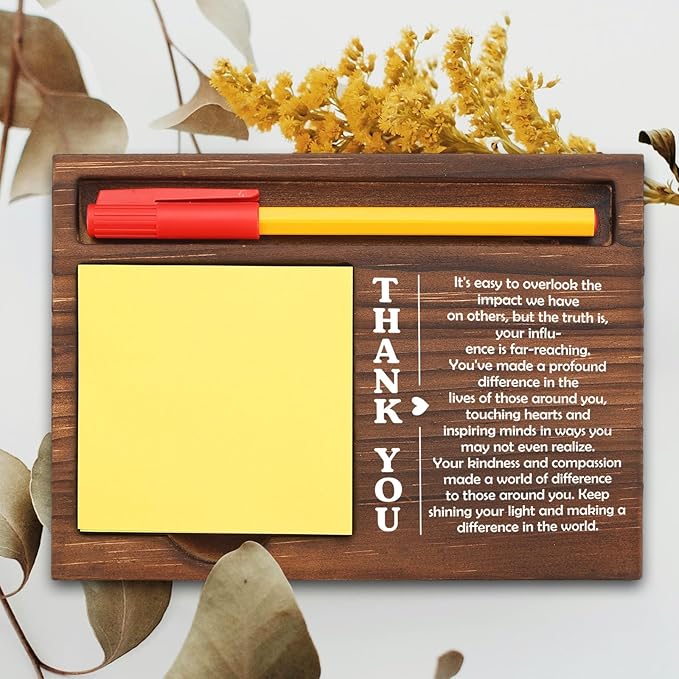 THANK YOU
It's easy to overlook the
impact we have
on others, but the truth is,
your influ-
ence is far-reaching.
You've made a profound
difference in the
lives of those around you,
touching hearts and
inspiring minds in ways you
may not even realize.
Your kindness and compassion
made a world of difference
to those around you. Keep
shining your light and making a
difference in the world.